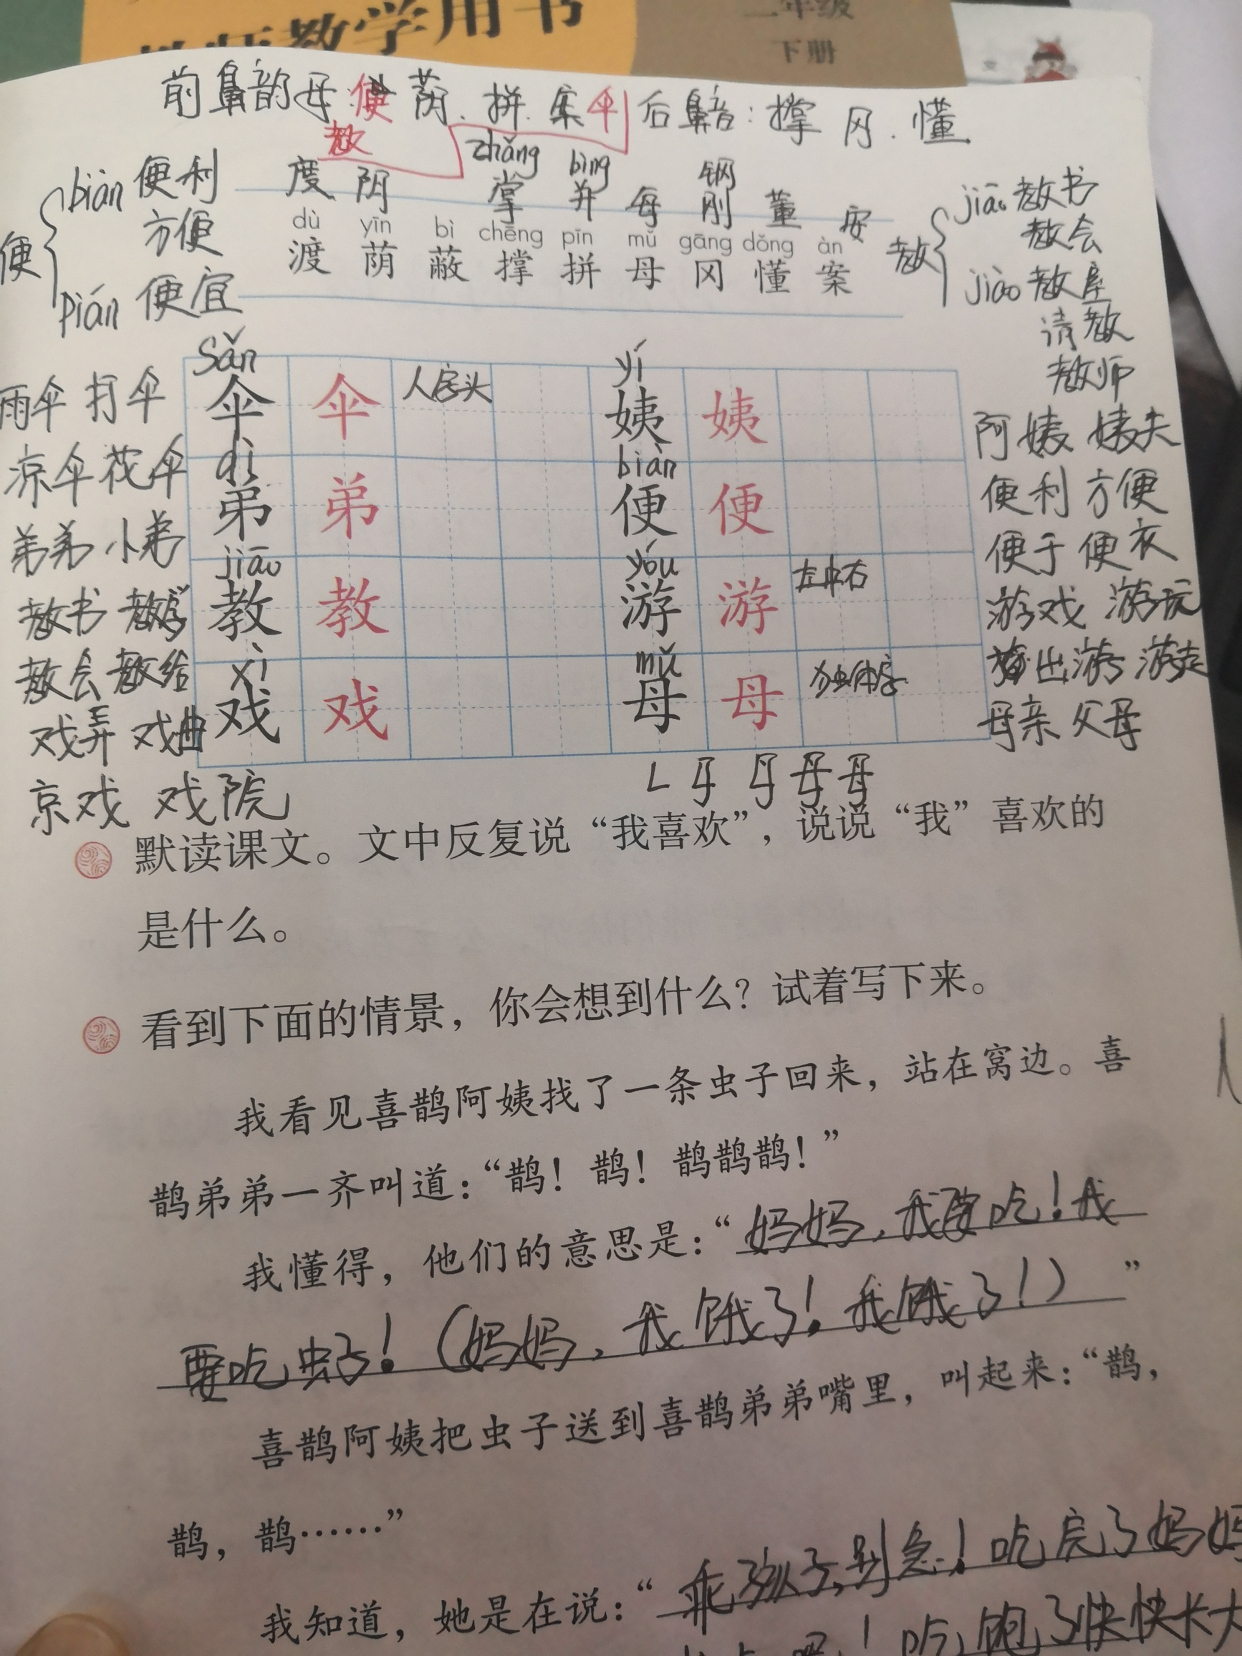 教师教学用书
二年级
下册
前鼻韵母:便 荫 拼 案 伞 后鼻音:撑 冈 懂
教
便 biàn 便利
方便
pián 便宜
度 阴 zhǎng 掌 bìng 并 每 钢 刚 董 安
dù yīn bì chēng pīn mǔ gāng dǒng àn
渡 荫 蔽 撑 拼 母 冈 懂 案
教 jiāo 教书
教会
jiào 教室
请教
教师
sǎn yí
雨伞 打伞 伞 伞 人字头 姨 姨 阿姨 姨夫
dì biàn
凉伞 花伞 弟 弟 便 便 便利 方便
弟弟 小弟 便于 便衣
jiāo yóu
教书 教学 教 教 游 游 左中右 游戏 游玩
教会 教给 出游 游走
xì mǔ
戏弄 戏曲 戏 戏 母 母 独体字 母亲 父母
京戏 戏院
默读课文。文中反复说“我喜欢”,说说“我”喜欢的
是什么。
看到下面的情景,你会想到什么?试着写下来。
我看见喜鹊阿姨找了一条虫子回来,站在窝边。喜
鹊弟弟一齐叫道:“鹊!鹊!鹊鹊鹊!”
我懂得,他们的意思是:“妈妈,我要吃!我
要吃虫子!(妈妈,我饿了!我饿了!)”
喜鹊阿姨把虫子送到喜鹊弟弟嘴里,叫起来:“鹊,
鹊,鹊……”
我知道,她是在说:“乖孩子,别急!吃完了妈妈
！吃饱了快快长大